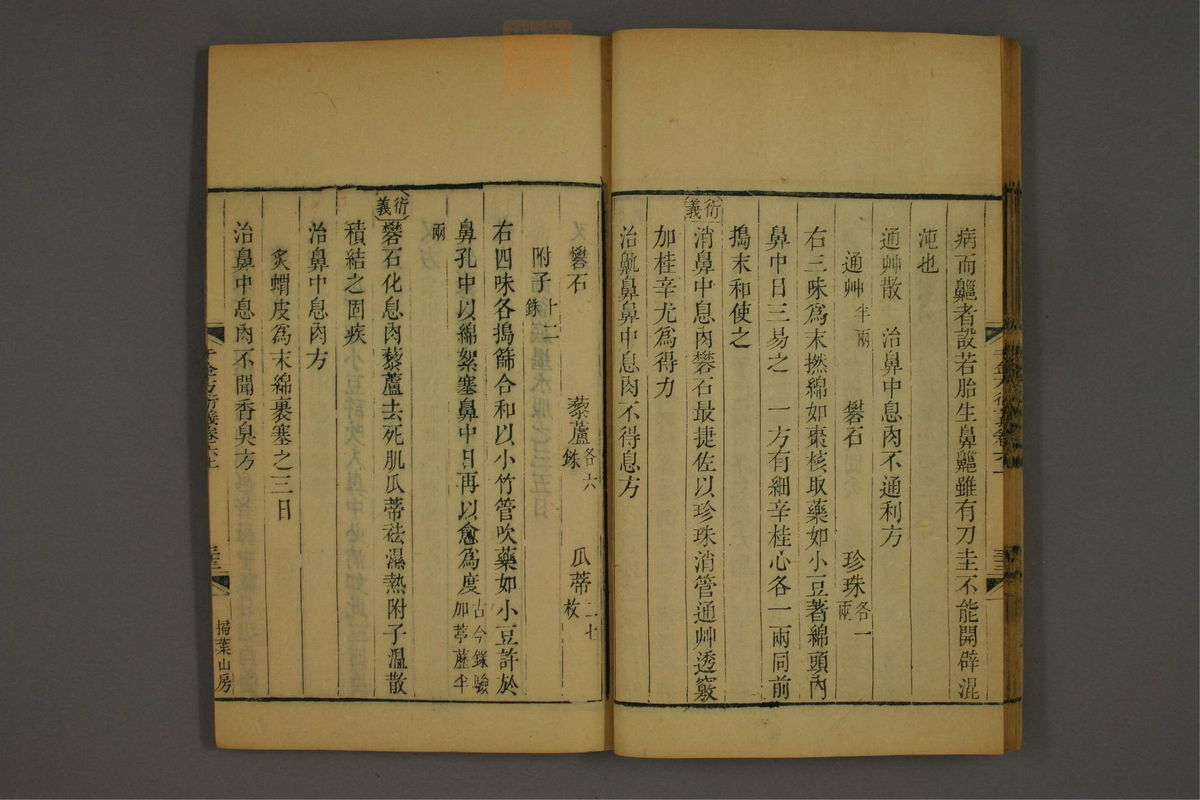 病而齆者設若胎生鼻齆雖有刀圭不能開辟混
沌也
通艸散　治鼻中息肉不通利方
通艸半兩　礬石　珍珠各一兩
右三味爲末撚綿如棗核取藥如小豆著綿頭內
鼻中日三易之　一方有細辛桂心各一兩同前
搗末和使之
衍義
消鼻中息肉礬石最捷佐以珍珠消管通艸透竅
加桂辛尤爲得力
治齆鼻鼻中息肉不得息方
礬石　藜蘆各六銖　瓜蒂二七枚
附子十二銖
右四味各搗篩合和以小竹管吹藥如小豆許於
鼻孔中以綿絮塞鼻中日再以愈爲度古今錄驗加葶藶半
兩
衍義
礬石化息肉藜蘆去死肌瓜蒂祛濕熱附子溫散
積結之固疾
治鼻中息肉方
炙蝟皮爲末綿裹塞之三日
治鼻中息肉不聞香臭方
千金方衍義卷六上
三三
掃葉山房